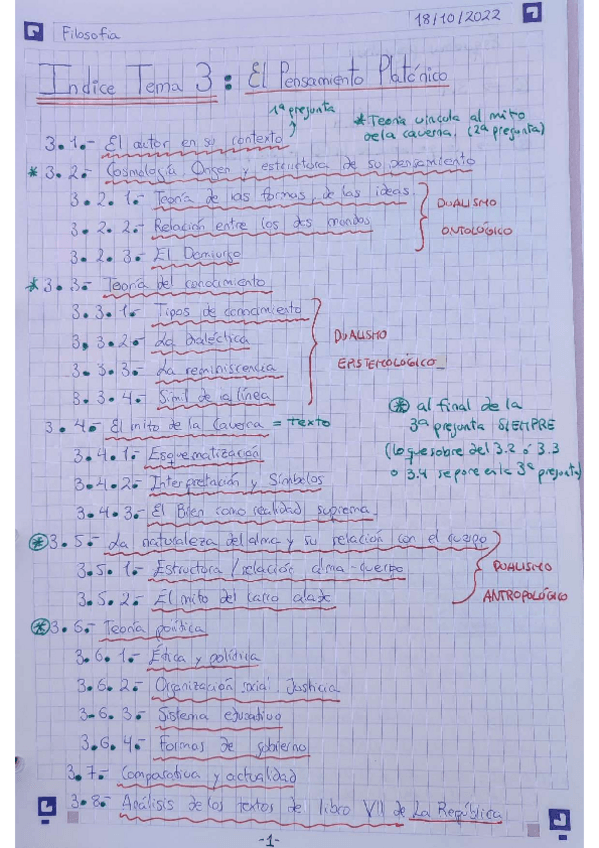 18/10/2022
Filosofía
Indice Tema 3: El Pensamiento Platónico
1ª pregunta
* Teoría vincula al mito
de la caverna. (2ª pregunta)
3.1.- El autor en su contexto
* 3.2.- Cosmología Origen y estructura de su pensamiento
3.2.1.- Teoría de las formas, de las ideas.
3.2.2.- Relación entre los dos mundos
3.2.3.- El Demiurgo
DUALISMO
ONTOLÓGICO
* 3.3- Teoría del conocimiento
3.3.1.- Tipos de conocimiento
3.3.2.- La dialéctica
3.3.3.- La reminiscencia
3.3.4.- Símil de la línea
DUALISMO
EPISTEMOLÓGICO
3.4.- El mito de la Caverna = Texto
3.4.1.- Esquematización
3.4.2.- Interpretación y Símbolos
3.4.3.- El Bien como realidad suprema
* al final de la
3ª pregunta SIEMPRE
(Lo que sobre del 3.2 ó 3.3
o 3.4 se pone en la 3ª pregunta)
* 3.5.- La naturaleza del alma y su relación con el cuerpo
3.5.1.- Estructura / relación alma-cuerpo
3.5.2.- El mito del carro alado
DUALISMO
ANTROPOLÓGICO
* 3.6.- Teoría política
3.6.1.- Ética y política
3.6.2.- Organización social. Justicia
3.6.3.- Sistema educativo
3.6.4.- Formas de gobierno
3.7.- Comparativa y actualidad
3.8.- Análisis de los textos de libro VII de La República
-1-